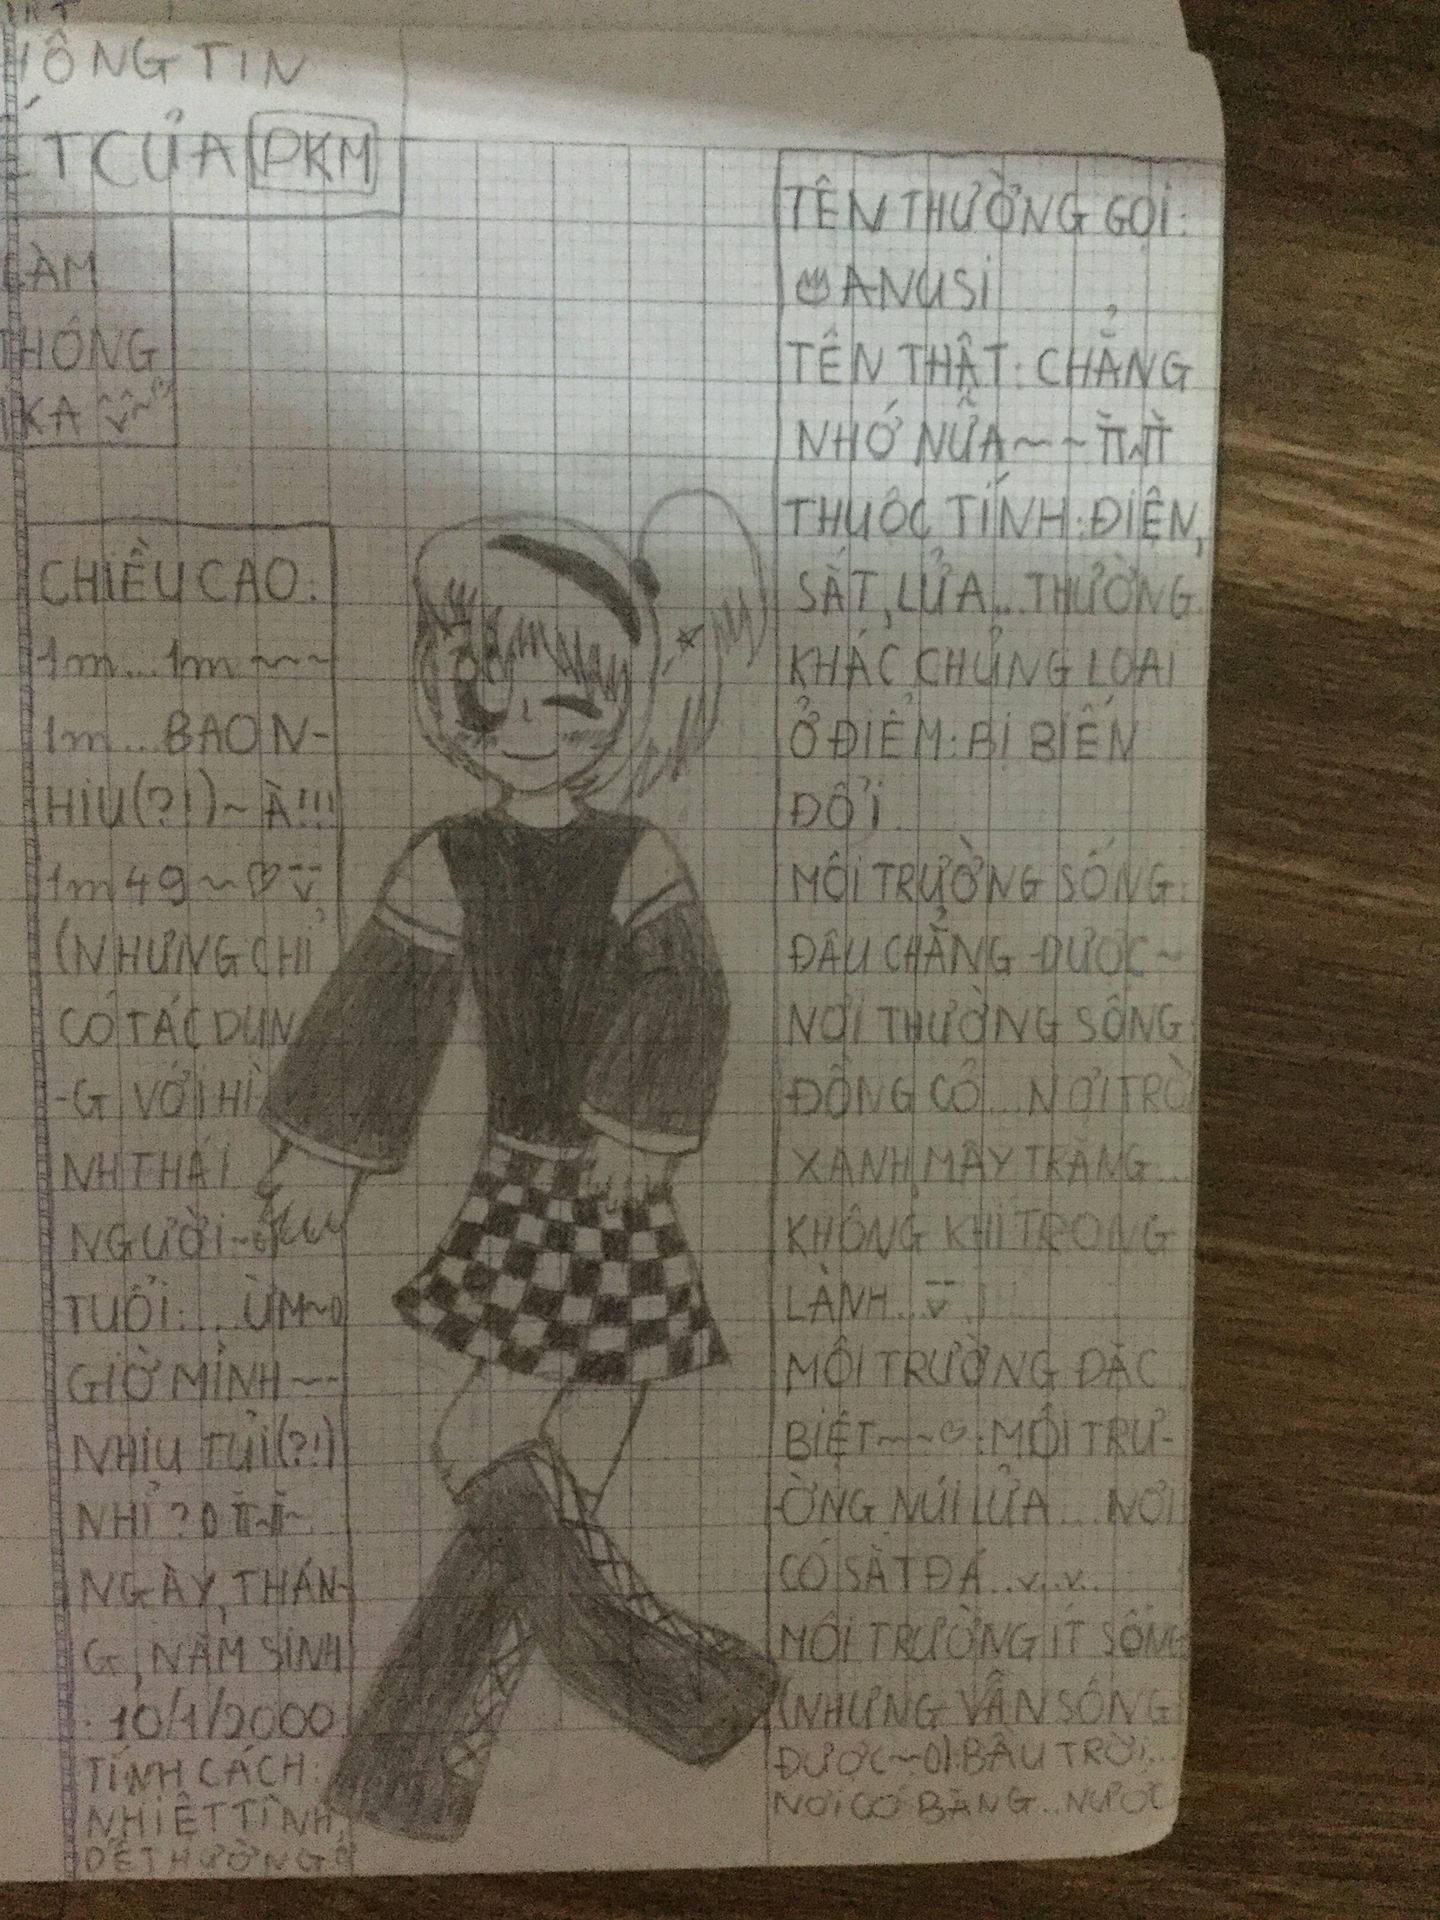 TIN
CỦA PKM
CHIỀU CAO:
1m...1m~~~
1m...BAO N-
HIU(?!)~À!!!
1m49~♡
(NHƯNG CHỈ
CÓ TÁC DỤN
-G VỚI HÌ-
NH THÁI
NGƯỜI~
TUỔI:...ỪM~
GIỜ MÌNH~~
NHIU TỦI(?!)
NHỈ?
NGÀY, THÁN-
G, NĂM SINH
:10/1/2000
TÍNH CÁCH:
NHIỆT TÌNH,
DỄ THƯƠNG
TÊN THƯỜNG GỌI:
ANUSI
TÊN THẬT: CHẲNG
NHỚ NỮA~~
THUỘC TÍNH: ĐIỆN,
SẮT, LỬA...THƯỜNG
KHÁC CHỦNG LOẠI
Ở ĐIỂM: BỊ BIẾN
ĐỔI
MÔI TRƯỜNG SỐNG:
ĐÂU CHẲNG ĐƯỢC~
NƠI THƯỜNG SỐNG:
ĐỒNG CỎ...NƠI TRỜI
XANH, MÂY TRẮNG...
KHÔNG KHÍ TRONG
LÀNH...
MÔI TRƯỜNG ĐẶC
BIỆT~~:MÔI TRƯ-
-ỜNG NÚI LỬA...NƠI
CÓ SẮT ĐÁ..v..v..
MÔI TRƯỜNG ÍT SỐNG
(NHƯNG VẪN SỐNG
ĐƯỢC~):BẦU TRỜI...
NƠI CÓ BĂNG..NƯỚC